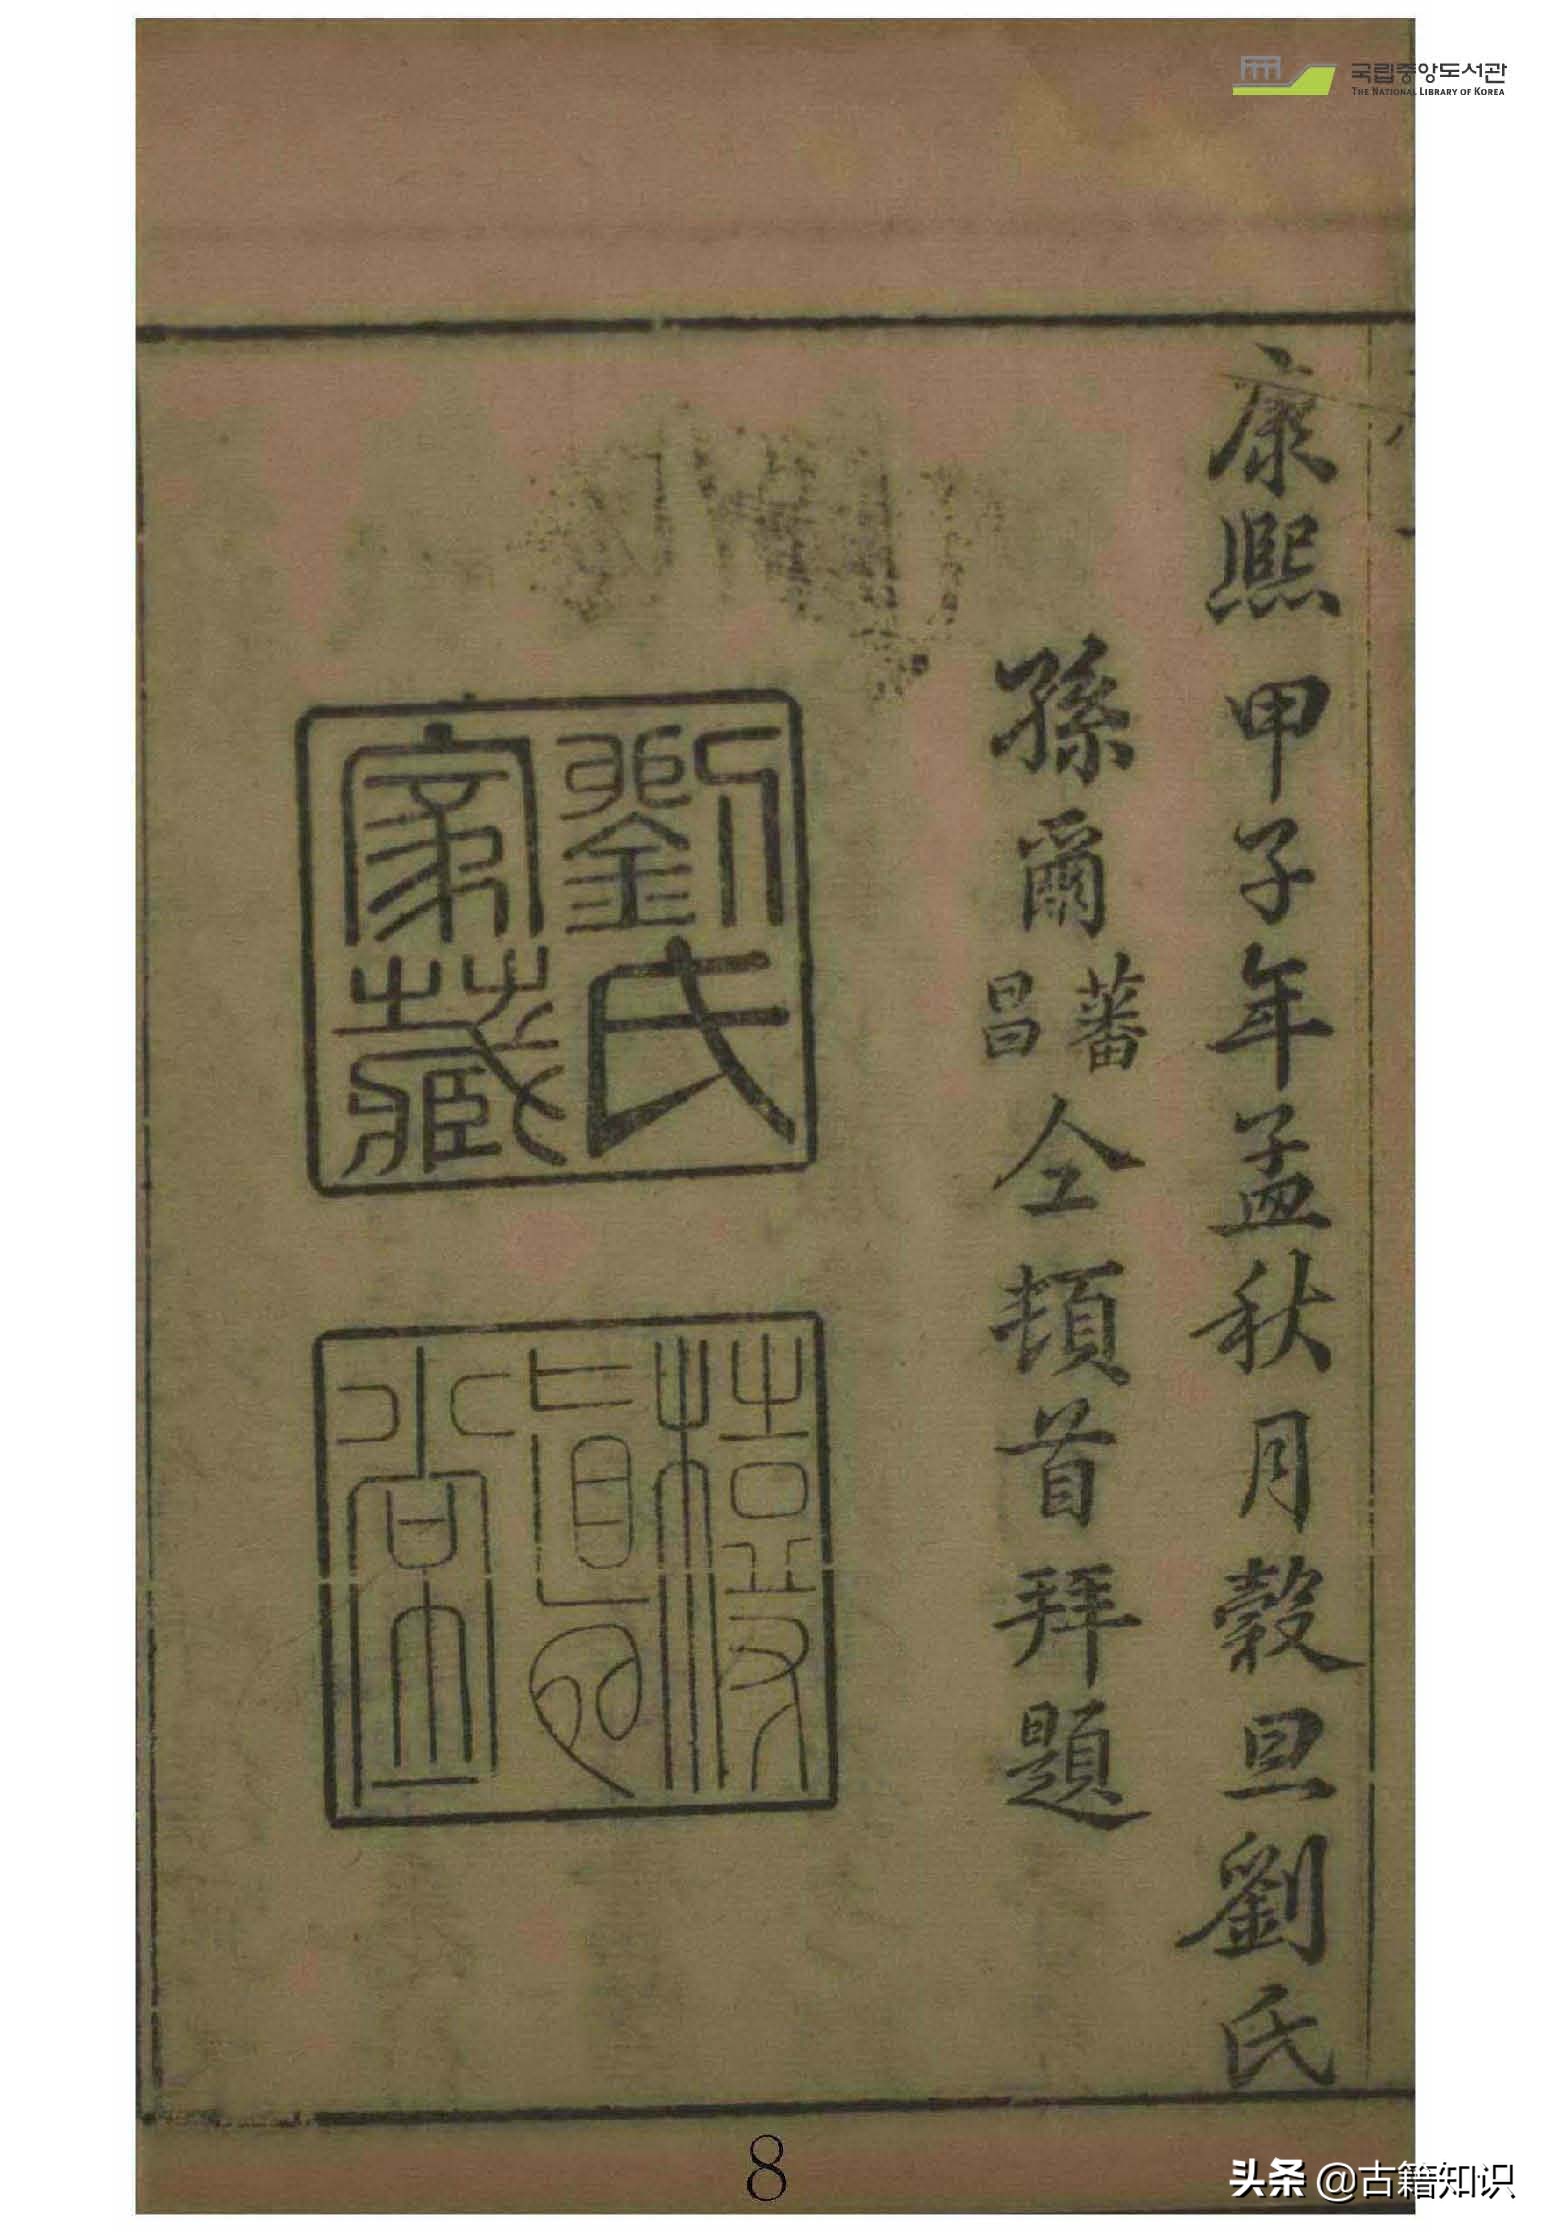 국립중앙도서관
THE NATIONAL LIBRARY OF KOREA
康熙甲子年孟秋月穀旦劉氏
孫爾蕃昌仝頓首拜題
劉氏
家藏
樹
德
堂
8
头条 @古籍知识